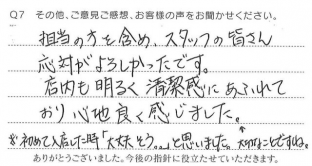 Q7 その他、ご意見ご感想、お客様の声をお聞かせください。
担当の方を含め、スタッフの皆さん
応対がよろしかったです。
店内も明るく清潔感にあふれて
おり心地良く感じました。
※初めて入店した時「大丈夫そう。」と思いました。↑大切なことですね。
ありがとうございました。今後の指針に役立たせていただきます。